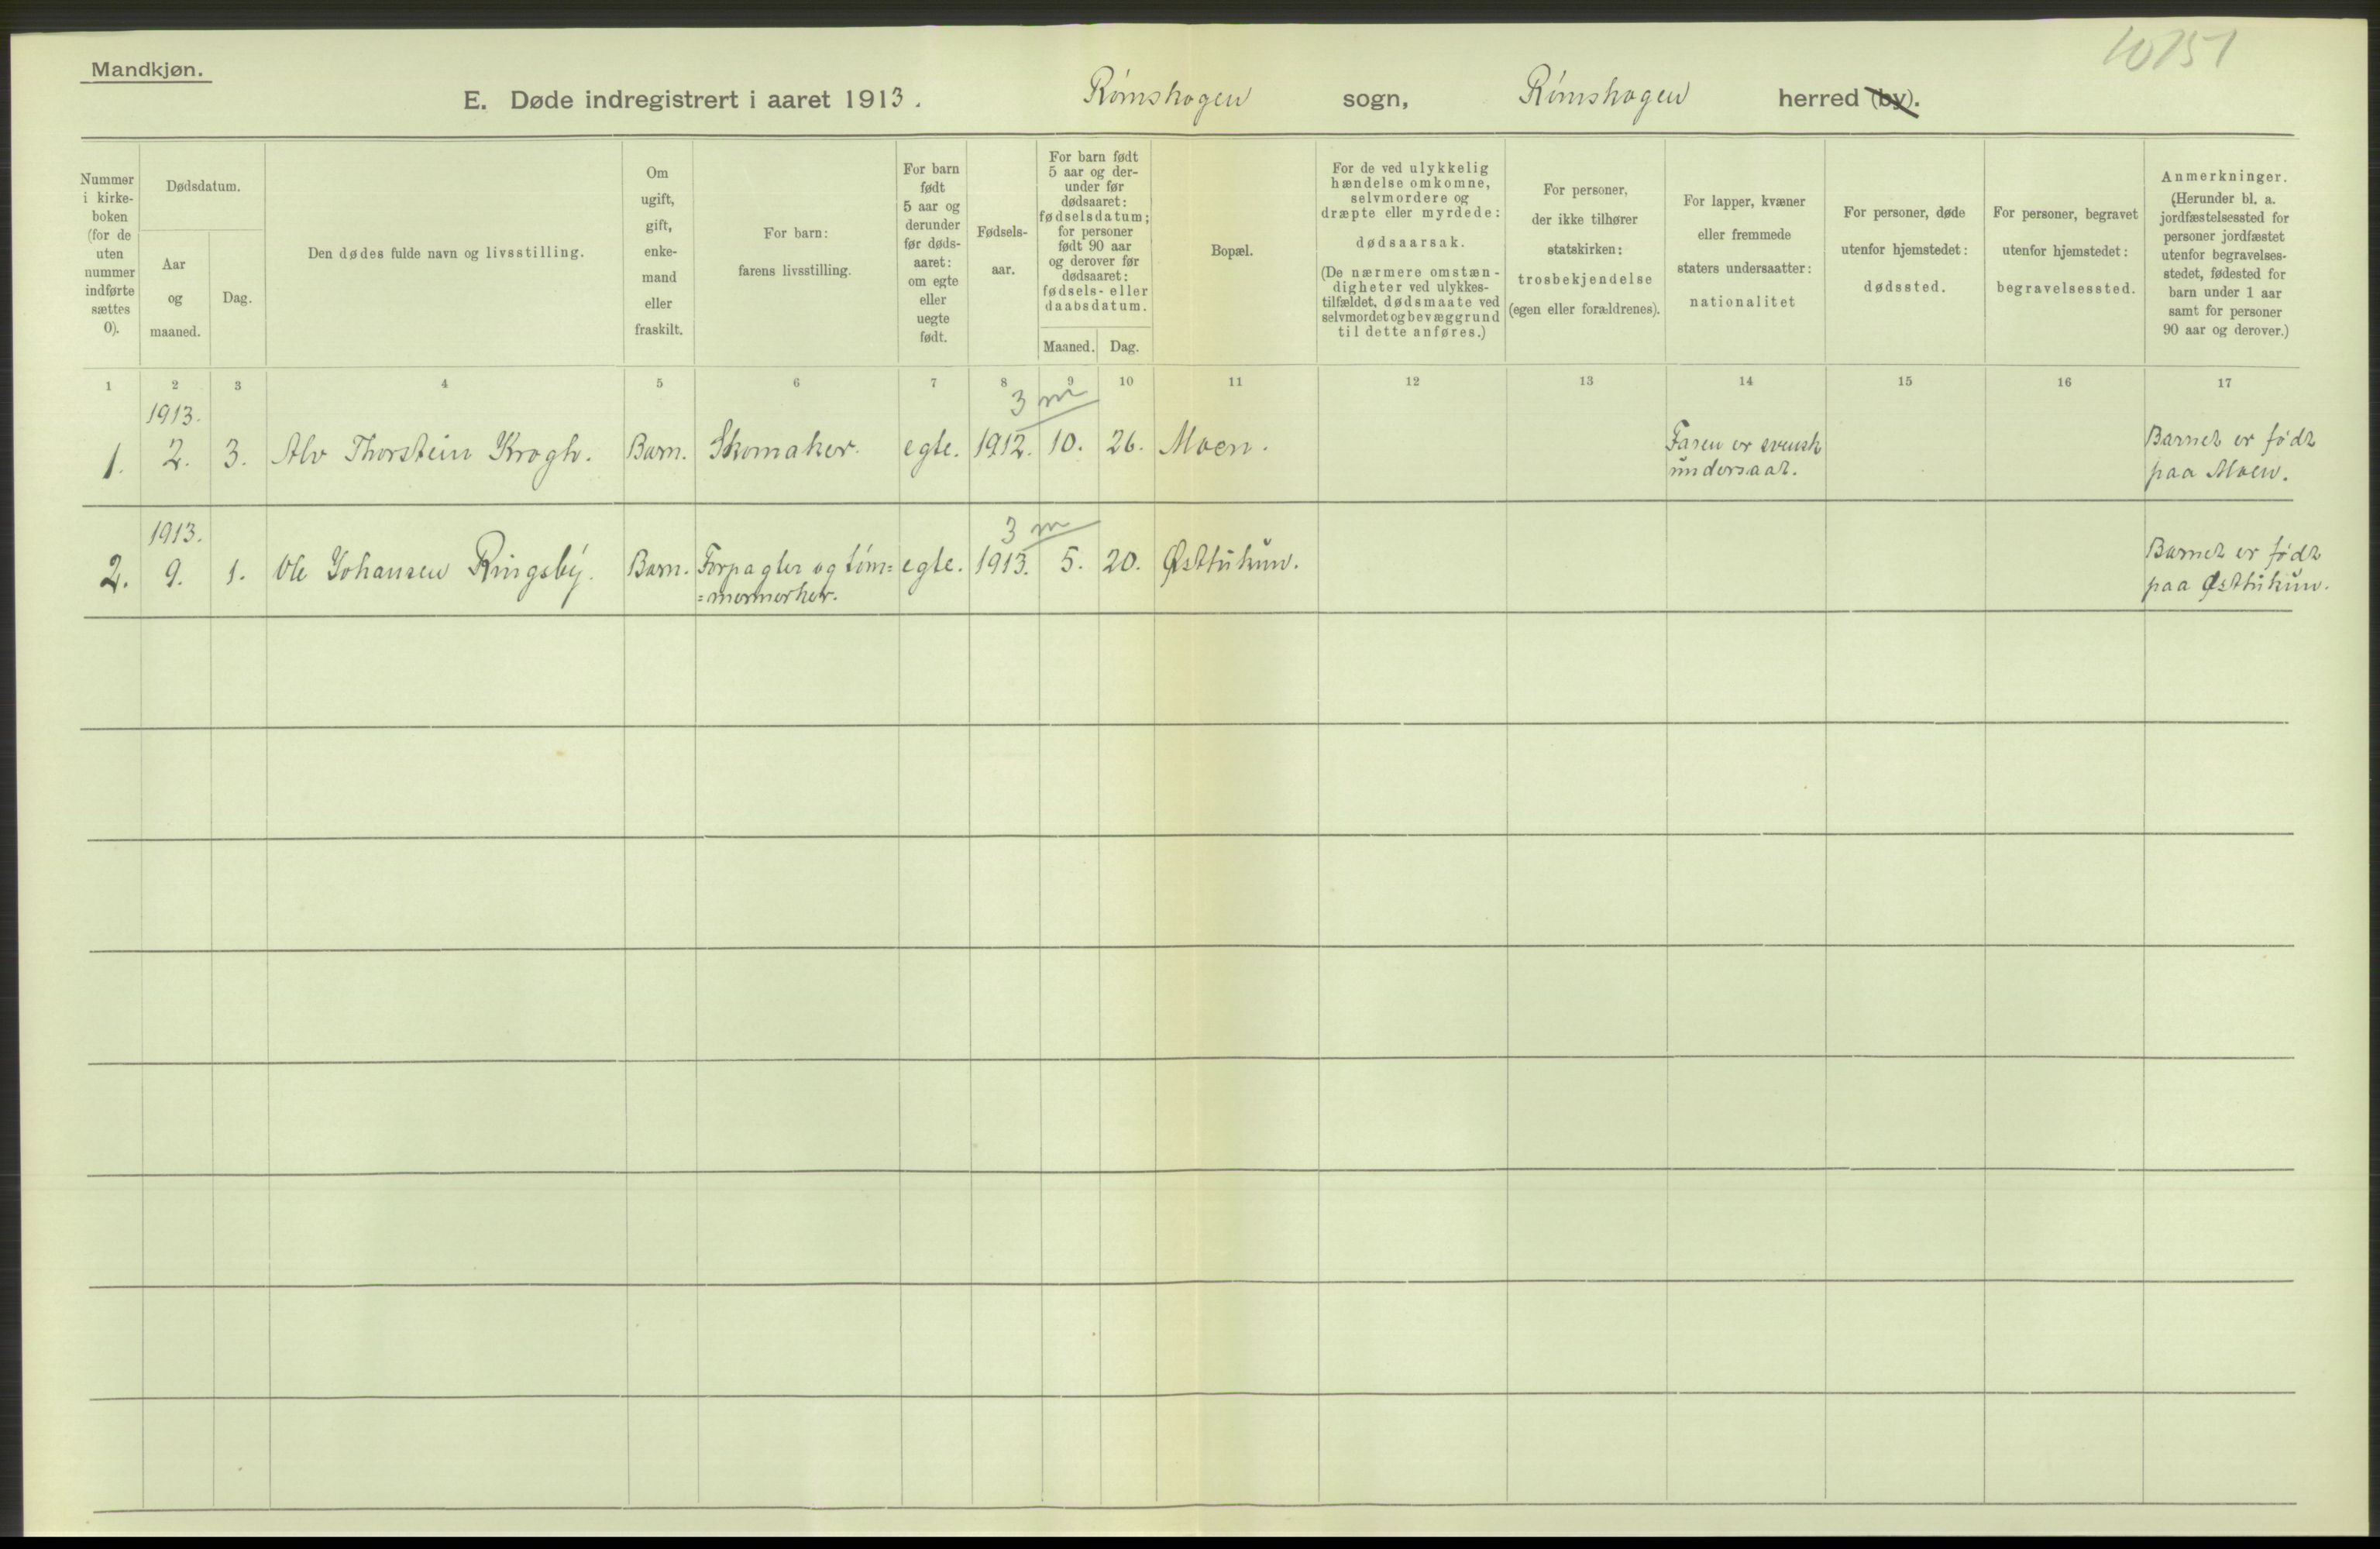 Mandkjøn.
10751
E. Døde indregistrert i aaret 1913. Rømskogen sogn, Rømskogen herred (by).
Nummer i kirkeboken (for de uten nummer indførte sættes 0).
Dødsdatum.
Aar og maaned.
Dag.
Den dødes fulde navn og livsstilling.
Om ugift, gift, enkemand eller fraskilt.
For barn: farens livsstilling.
For barn født 5 aar og derunder før dødsaaret: om egte eller uegte født.
Fødselsaar.
For barn født 5 aar og derunder før dødsaaret: fødselsdatum; for personer født 90 aar og derover før dødsaaret: fødsels- eller daabsdatum.
Maaned. Dag.
Bopæl.
For de ved ulykkelig hændelse omkomne, selvmordere og dræpte eller myrdede: dødsaarsak. (De nærmere omstændigheter ved ulykkestilfældet, dødsmaate ved selvmordet og bevæggrund til dette anføres.)
For personer, der ikke tilhører statskirken: trosbekjendelse (egen eller forældrenes).
For lapper, kvæner eller fremmede staters undersaatter: nationalitet
For personer, døde utenfor hjemstedet: dødssted.
For personer, begravet utenfor hjemstedet: begravelsessted.
Anmerkninger. (Herunder bl. a. jordfæstelsessted for personer jordfæstet utenfor begravelsesstedet, fødested for barn under 1 aar samt for personer 90 aar og derover.)
1 2 3 4 5 6 7 8 9 10 11 12 13 14 15 16 17
1913. 3 m
1. 2. 3. Alv Thorstein Krogh. Barn. Skomaker. egte. 1912. 10. 26. Moen. Faren er svensk undersaat. Barnet er født paa Moen.
1913. 3 m
2. 9. 1. Ole Johansen Ringsby. Barn. Forpagter og tøm= =mermerker. egte. 1913. 5. 20. Østtukun. Barnet er født paa Østtukun.